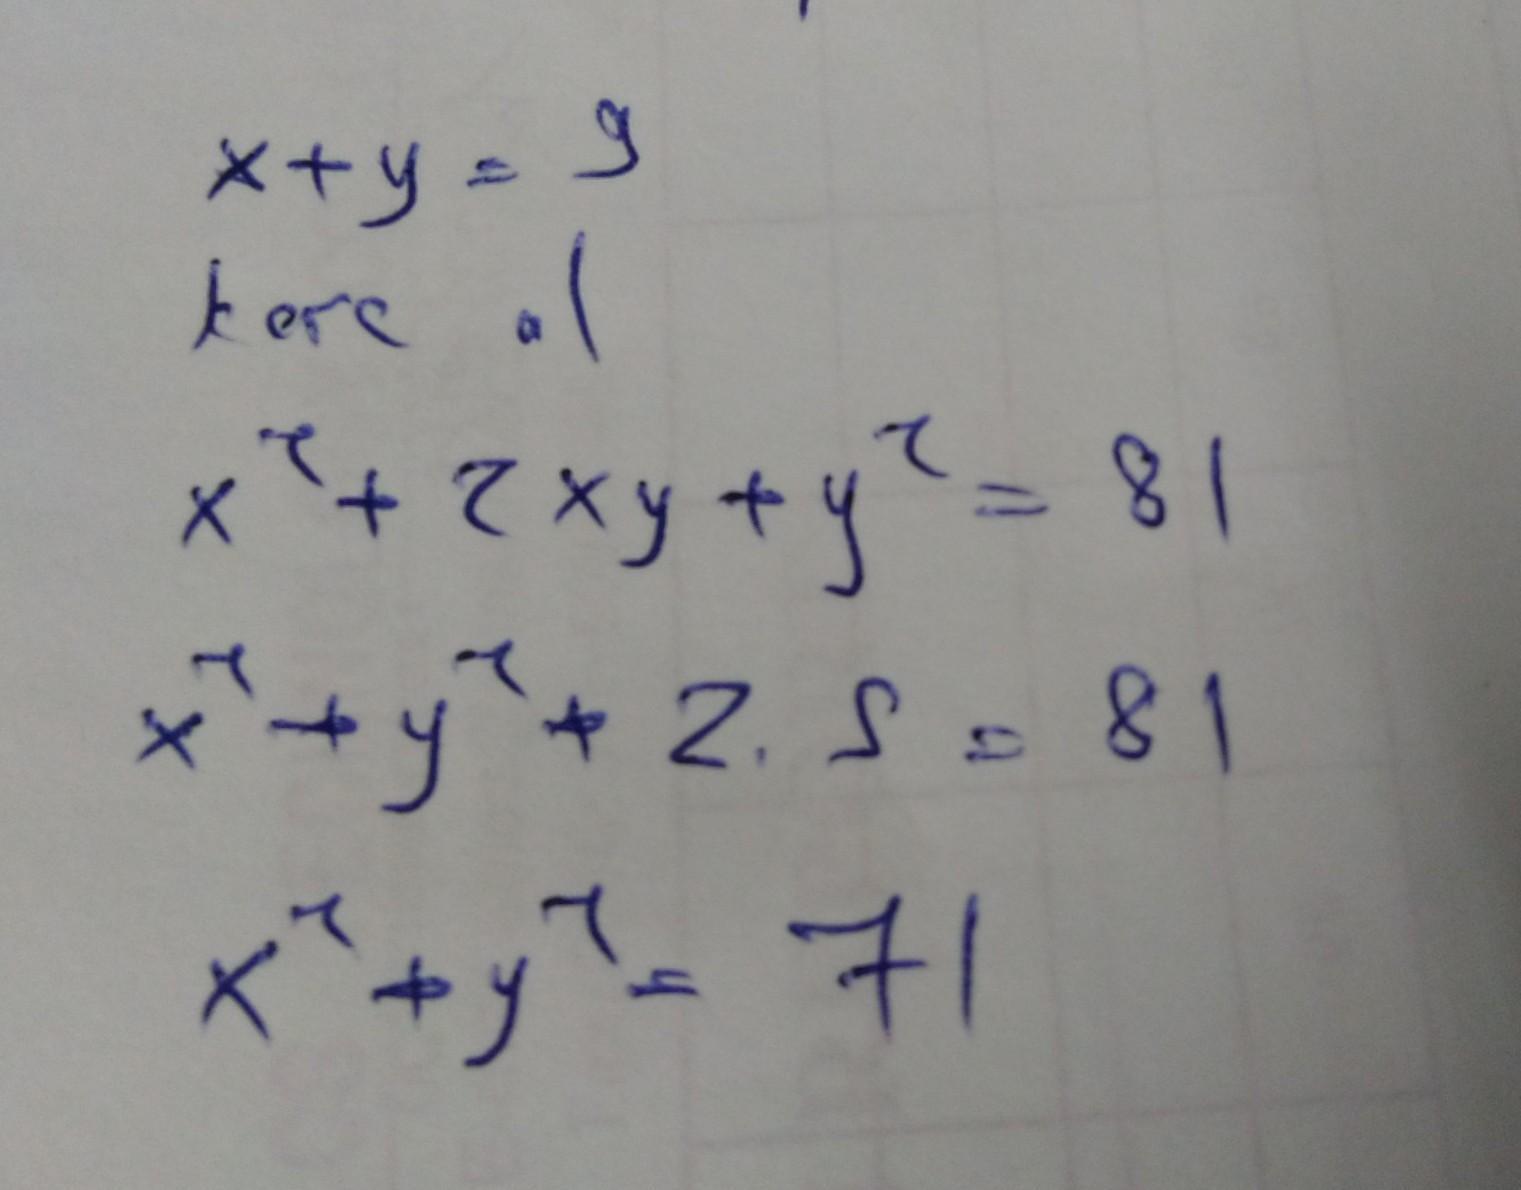 x+y = 9
kare al
x² + 2xy + y² = 81
x² + y² + 2.5 = 81
x² + y² = 71